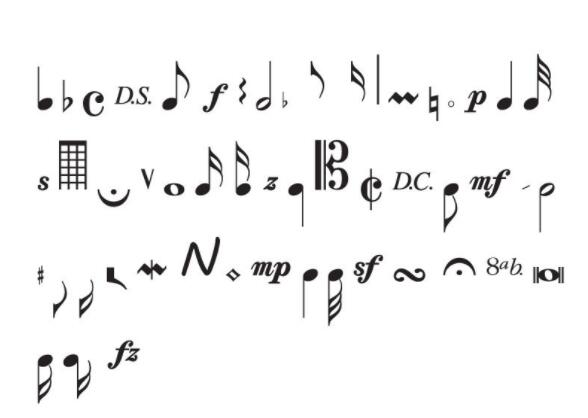 c D.S. f p
s V z D.C. mf
N mp sf 8ab.
fz